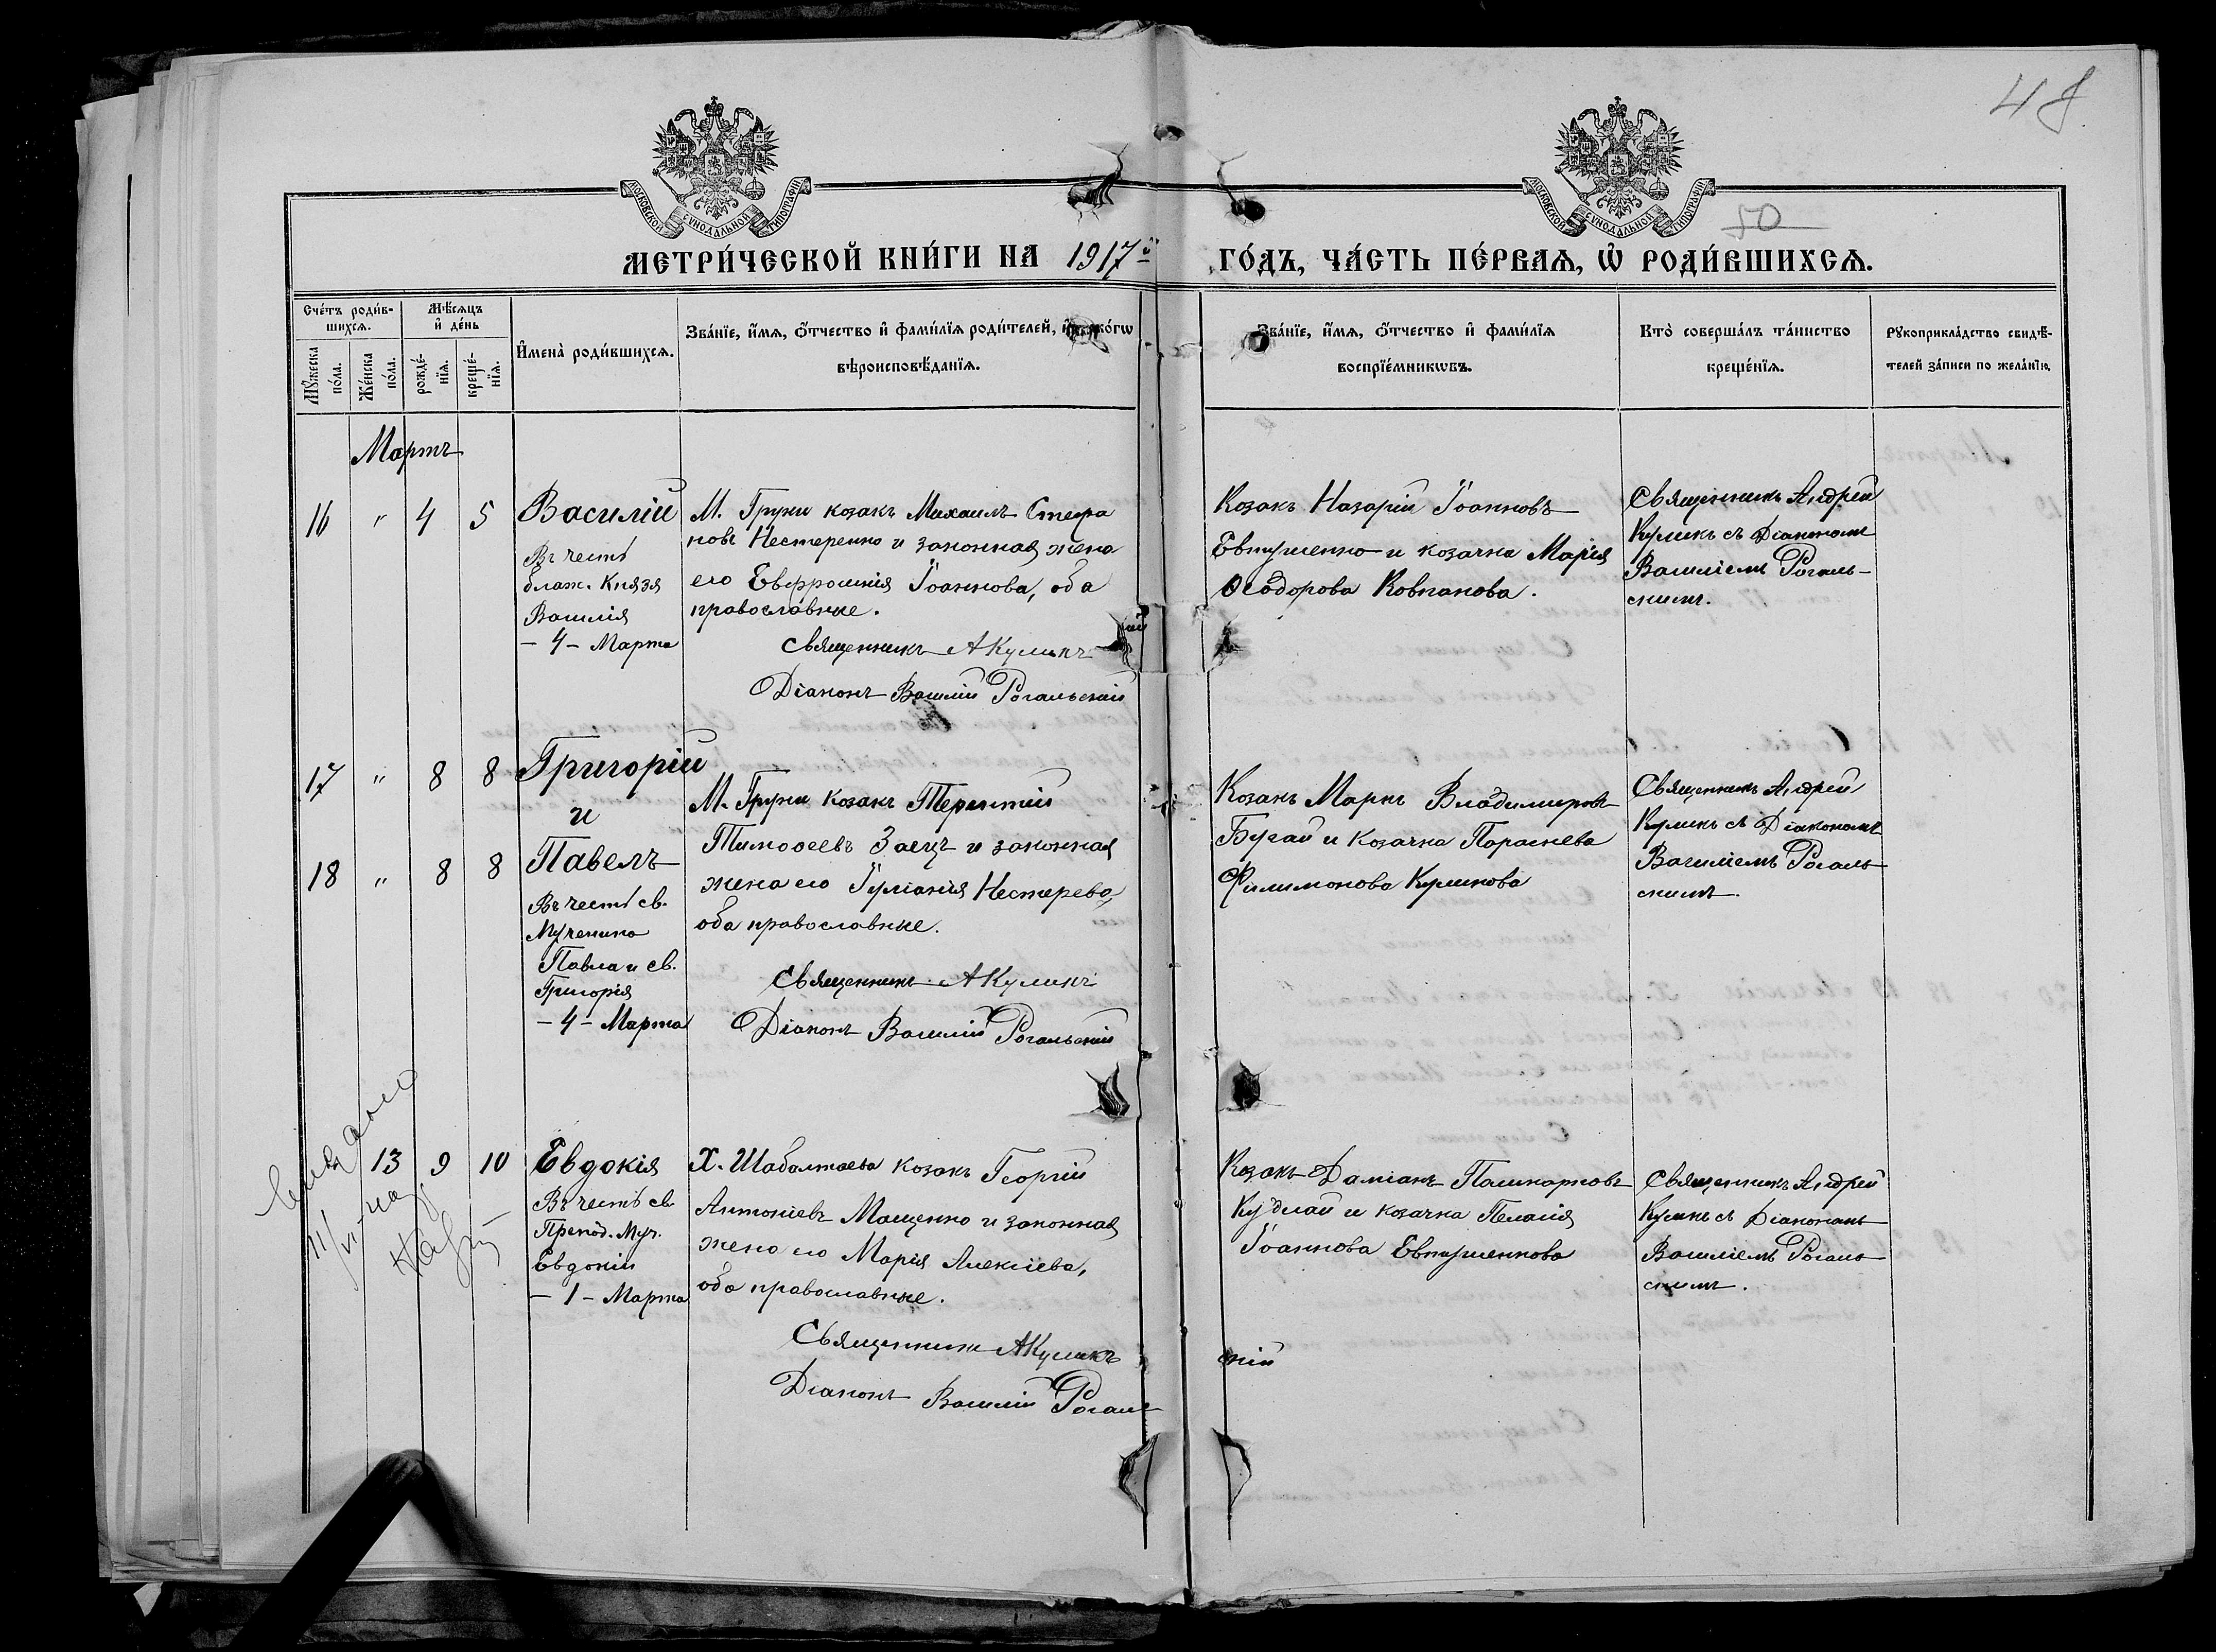 48
50
МОСКОВСКОЙ СѴНОДАЛЬНОЙ ТИПОГРАФІИ
МОСКОВСКОЙ СѴНОДАЛЬНОЙ ТИПОГРАФІИ
МЕТРИ́ЧЕСКОЙ КНИ́ГИ НА 1917й ГО́ДЪ, ЧА́СТЬ ПЕ́РВАѦ, Ѡ҆ РОДИ́ВШИХСѦ.
Сче́тъ роди́в-
шихсѧ.
Мѣ́сѧцъ
и҆ де́нь
Мꙋ́жеска
по́ла.
Же́нска
по́ла.
рожде́-
нїѧ.
креще́-
нїѧ.
И҆мена̀ роди́вшихсѧ.
Зва́нїе, и҆́мѧ, ѻ҆́тчество и҆ фами́лїѧ роди́телей, и҆ како́гѡ
вѣроисповѣ́данїѧ.
Зва́нїе, и҆́мѧ, ѻ҆́тчество и҆ фами́лїѧ
воспрїе́мникѡвъ.
Кто̀ соверша́лъ та́инство
креще́нїѧ.
Рꙋкоприкла́дство свидѣ́-
телей за́писи по жела́нїю.
Мартъ
16 " 4 5
Василій
Въ честь
благ. Князя
Василія
– 4 – Марта
М. Груни козакъ Михаилъ Стефа
новъ Нестеренко и законная жена
его Евфросинія Іоаннова, оба
православные.
Священникъ АКуликъ
Діаконъ Василій Рогальскій
Козакъ Назарій Іоанновъ
Евтушенко и козачка Марія
Ѳеодорова Ковпакова.
Священникъ Андрей
Куликъ съ Діакономъ
Василіемъ Рогаль-
скимъ.
17 " 8 8
Григорій
и
18 " 8 8
Павелъ
Въ честь св.
Мученика
Павла и св.
Григорія
– 4 – Марта
М. Груни козакъ Терентій
Тимоѳеевъ Заецъ и законная
жена его Іуліанія Нестерева,
оба православные.
Священникъ АКуликъ
Діаконъ Василій Рогальскій
Козакъ Маркъ Владимировъ
Бугай и козачка Параскева
Филимонова Куликова
Священникъ Андрей
Куликъ съ Діакономъ
Василіемъ Рогаль
скимъ.
13 9 10
Евдокія
Въ честь св.
Препод. Муч.
Евдокіи
– 1 – Марта
Х. Шабалтаева козакъ Георгій
Антоніевъ Мащенко и законная
жена его Марія Алексіева,
оба православные.
Священникъ АКуликъ
Діаконъ Василій Рогаль
скій
Козакъ Даміанъ Поликарповъ
Кудлай и козачка Пелагія
Іоаннова Евтушенкова
Священникъ Андрей
Куликъ съ Діакономъ
Василіемъ Рогаль
скимъ.